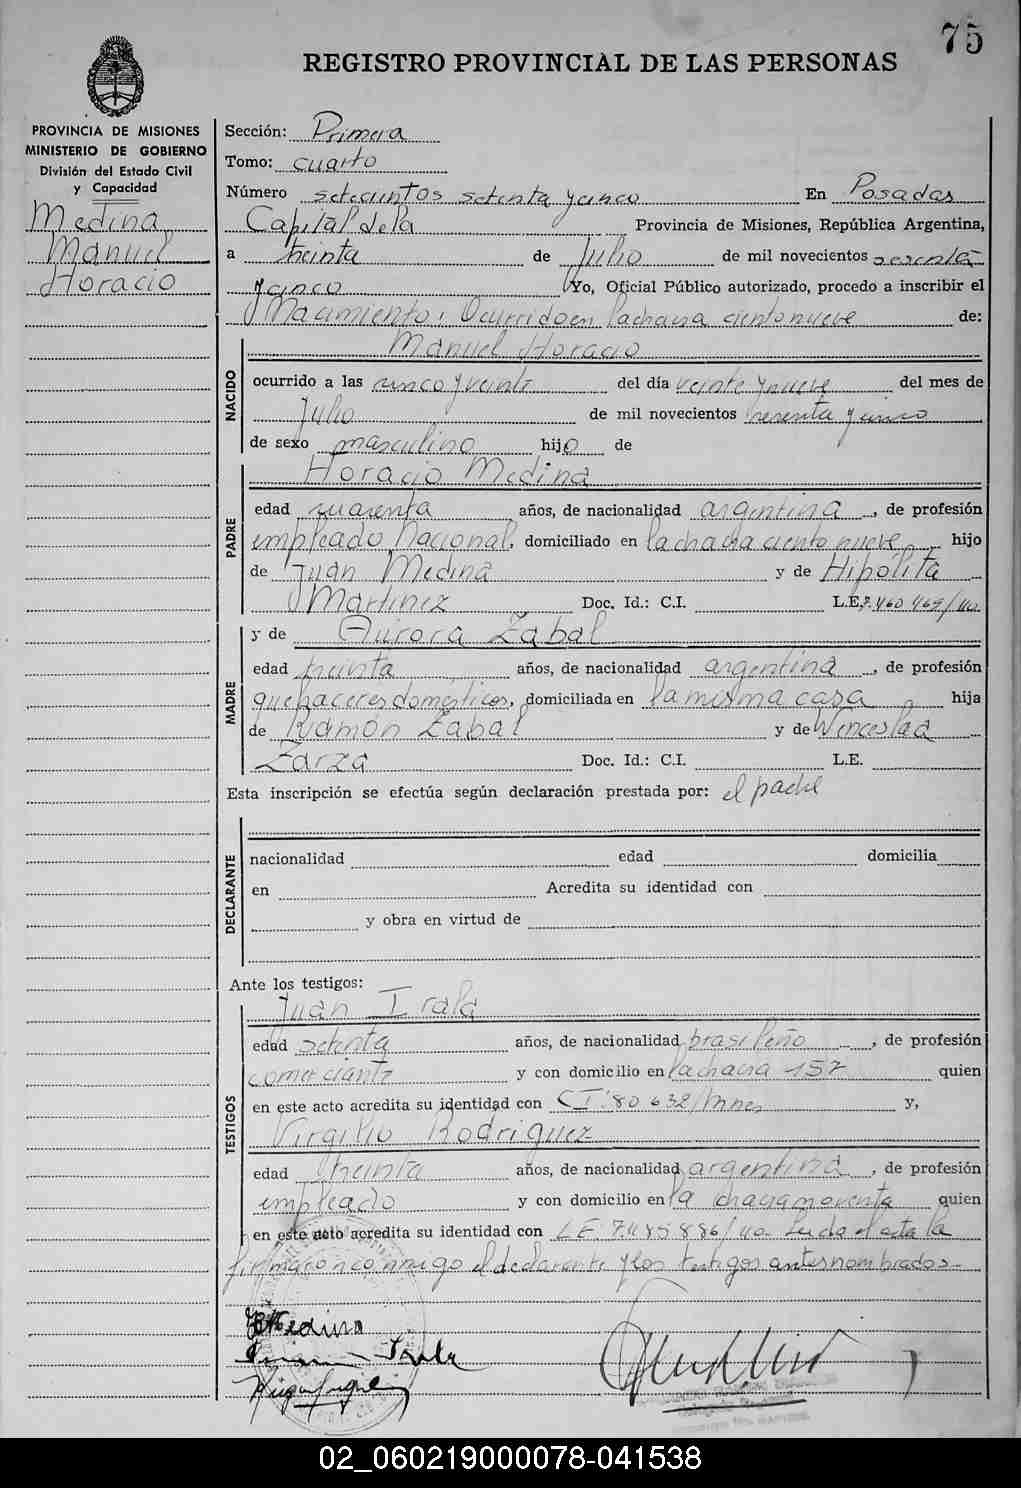 75
REGISTRO PROVINCIAL DE LAS PERSONAS
PROVINCIA DE MISIONES
MINISTERIO DE GOBIERNO
División del Estado Civil
y Capacidad
Medina
Manuel
Horacio
Sección: Primera
Tomo: cuarto
Número setecientos setenta y cinco En Posadas
Capital de la Provincia de Misiones, República Argentina,
a treinta de Julio de mil novecientos sesenta
y cinco Yo, Oficial Público autorizado, procedo a inscribir el
Nacimiento, Ocurrido en la chacra ciento nueve de:
Manuel Horacio
NACIDO
ocurrido a las cinco y veinte del día veinte y nueve del mes de
Julio de mil novecientos sesenta y cinco
de sexo masculino hijo de
Horacio Medina
PADRE
edad cuarenta años, de nacionalidad argentina, de profesión
empleado Nacional, domiciliado en la chacra ciento nueve hijo
de Juan Medina y de Hipólita
Martinez Doc. Id.: C.I. L.E.
y de Aurora Zabal
MADRE
edad treinta años, de nacionalidad argentina, de profesión
quehaceres domésticos, domiciliada en la misma casa hija
de Ramón Zabal y de Wenceslada
Zarza Doc. Id.: C.I. L.E.
Esta inscripción se efectúa según declaración prestada por: el padre
DECLARANTE
nacionalidad edad domicilia
en Acredita su identidad con
y obra en virtud de
Ante los testigos:
Juan Irala
TESTIGOS
edad setenta años, de nacionalidad brasileño, de profesión
comerciante y con domicilio en la chacra 157 quien
en este acto acredita su identidad con CI: 80 632/Mnes y,
Virgilio Rodriguez
edad treinta años, de nacionalidad argentina, de profesión
empleado y con domicilio en la chacra noventa quien
en este acto acredita su identidad con LE. 7.485886/40. Leida el acta la
firmaron conmigo el declarante y los testigos antes nombrados.-
HMedina
Juan Irala
02_060219000078-041538